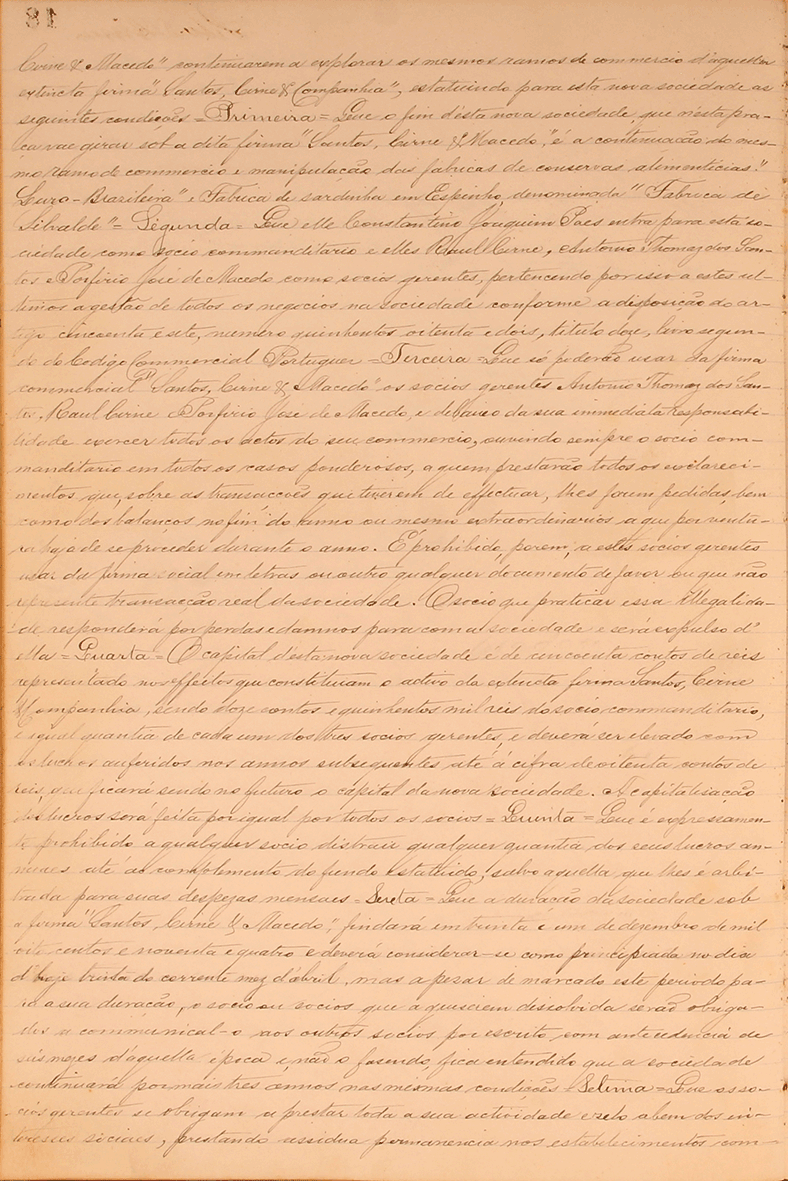 18
Cirne & Macedo" continuarem a explorar os mesmos ramos de commercio d'aquella
extincta firma "Santos, Cirne & Companhia", estatuindo para esta nova sociedade as
seguintes condições = Primeira = Que o fim d'esta nova sociedade, que n'esta pra-
ça vae girar sob a dita firma "Santos, Cirne & Macedo," é a continuação do mes-
mo ramo de commercio e manipulação das fabricas de conservas alimenticias "
Luzo-Brazileira" e Fabrica de sardinha em Espinho, denominada "Fabrica de
Silvalde" = Segunda = Que elle Constantino Joaquim Paes entra para esta so-
ciedade como socio commanditario e elles Raul Cirne, Antonio Thomaz dos San-
tos e Porfirio José de Macedo como socios gerentes, pertencendo por isso a estes ul-
timos a gestão de todos os negocios na sociedade conforme a disposição do ar-
tigo cincoenta e sete, numero quinhentos oitenta e dois, titulo doze, livro segun-
do do Codigo Commercial Portuguez = Terceira = Que só poderão usar da firma
commercial "Santos, Cirne & Macedo" os socios gerentes Antonio Thomaz dos San-
tos, Raul Cirne e Porfirio José de Macedo, e debaixo da sua immediata responsabi-
lidade exercer todos os actos do seu commercio, ouvindo sempre o socio com-
manditario em todos os casos ponderosos, a quem prestarão todos os esclareci-
mentos que, sobre as transacções que tiverem de effectuar, lhes forem pedidas, bem
como dos balanços no fim do anno ou mesmo extraordinarios a que por ventu-
ra haja de se proceder durante o anno. É prohibido, porem, a estes socios gerentes
usar da firma social em letras ou outro qualquer documento de favor ou que não
represente transacção real da sociedade. O socio que praticar essa illegalida-
de responderá por perdas e damnos para com a sociedade e será expulso d'
ella = Quarta = O capital d'esta nova sociedade é de cincoenta contos de reis
representado nos effeitos que constituiam o activo da extincta firma Santos, Cirne
& Companhia, sendo doze contos e quinhentos mil reis do socio commanditario,
e igual quantia de cada um dos tres socios gerentes, e deverá ser elevado com
os lucros auferidos nos annos subsequentes até á cifra de oitenta contos de
reis, que ficará sendo no futuro o capital da nova sociedade. A capitalisação
dos lucros será feita por igual por todos os socios = Quinta = Que é expressamen-
te prohibido a qualquer socio distrair qualquer quantia dos seus lucros an-
nuaes até ao complemento do fundo estatuido, salvo aquella que lhes é arbi-
trada para suas despezas mensaes = Sexta = Que a duração da sociedade sob
a firma "Santos Cirne & Macedo", findará em trinta e um de dezembro de mil
oito centos e noventa e quatro e deverá considerar-se como principiada no dia
d'hoje trinta do corrente mez d'abril, mas a pezar de marcado este periodo pa-
ra a sua duração, o socio ou socios que a quizerem dissolvida serão obriga-
dos a communical-o aos outros socios por escripto com antecedencia de
seis mezes d'aquella época e, não o fazendo, fica entendido que a sociedade
continuará por mais tres annos nas mesmas condições = Setima = Que os so-
cios gerentes se obrigam a prestar toda a sua actividade e zelo a bem dos in-
teresses sociaes, prestando assidua permanencia nos estabelecimentos com-